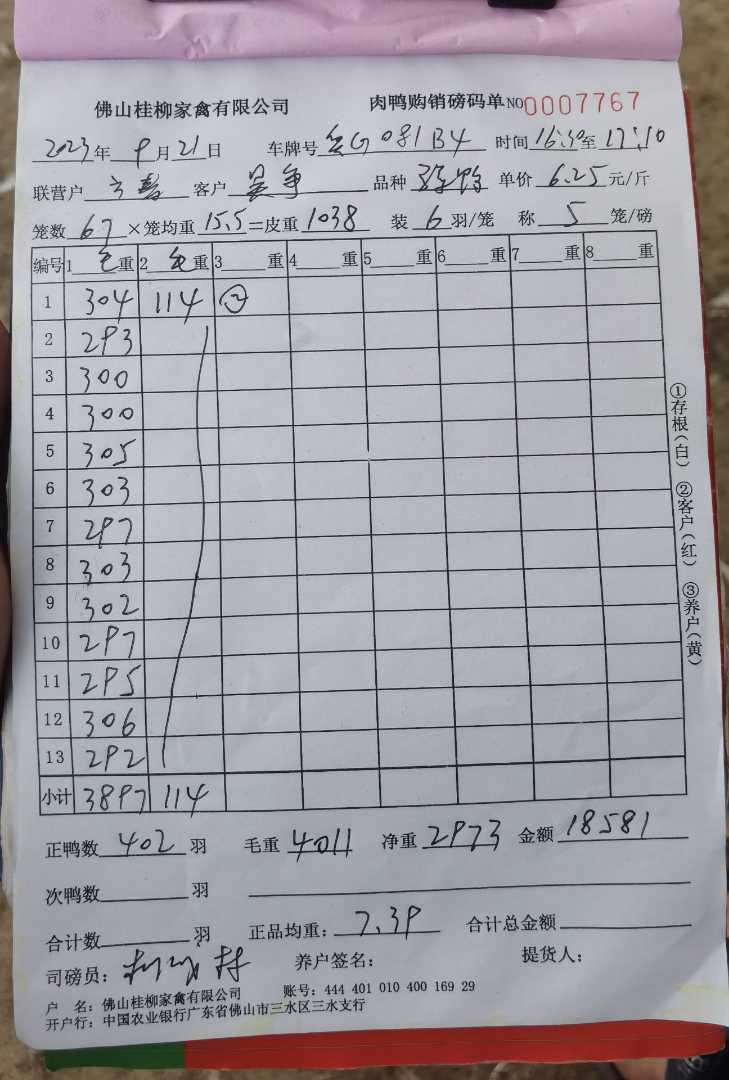 佛山桂柳家禽有限公司 肉鸭购销磅码单 NO 0007767
2023年 9月21日 车牌号 G081B4 时间16:30至17:10
联营户 客户 吴争 品种 单价 6.25 元/斤
笼数 67 ×笼均重 15.5 =皮重 1038 装 6 羽/笼 称 5 笼/磅
编号 1 毛重 2 毛重 3 重 4 重 5 重 6 重 7 重 8 重
1 304 114 ②
2 293
3 300
4 300
5 305
6 303
7 297
8 303
9 302
10 297
11 295
12 306
13 292
小计 3897 114
正鸭数 402 羽 毛重 4011 净重 2973 金额 18581
次鸭数 羽
合计数 羽 正品均重: 7.39 合计总金额
司磅员: 养户签名: 提货人:
户 名: 佛山桂柳家禽有限公司 账号: 444 401 010 400 169 29
开户行: 中国农业银行广东省佛山市三水区三水支行
①存根(白) ②客户(红) ③养户(黄)